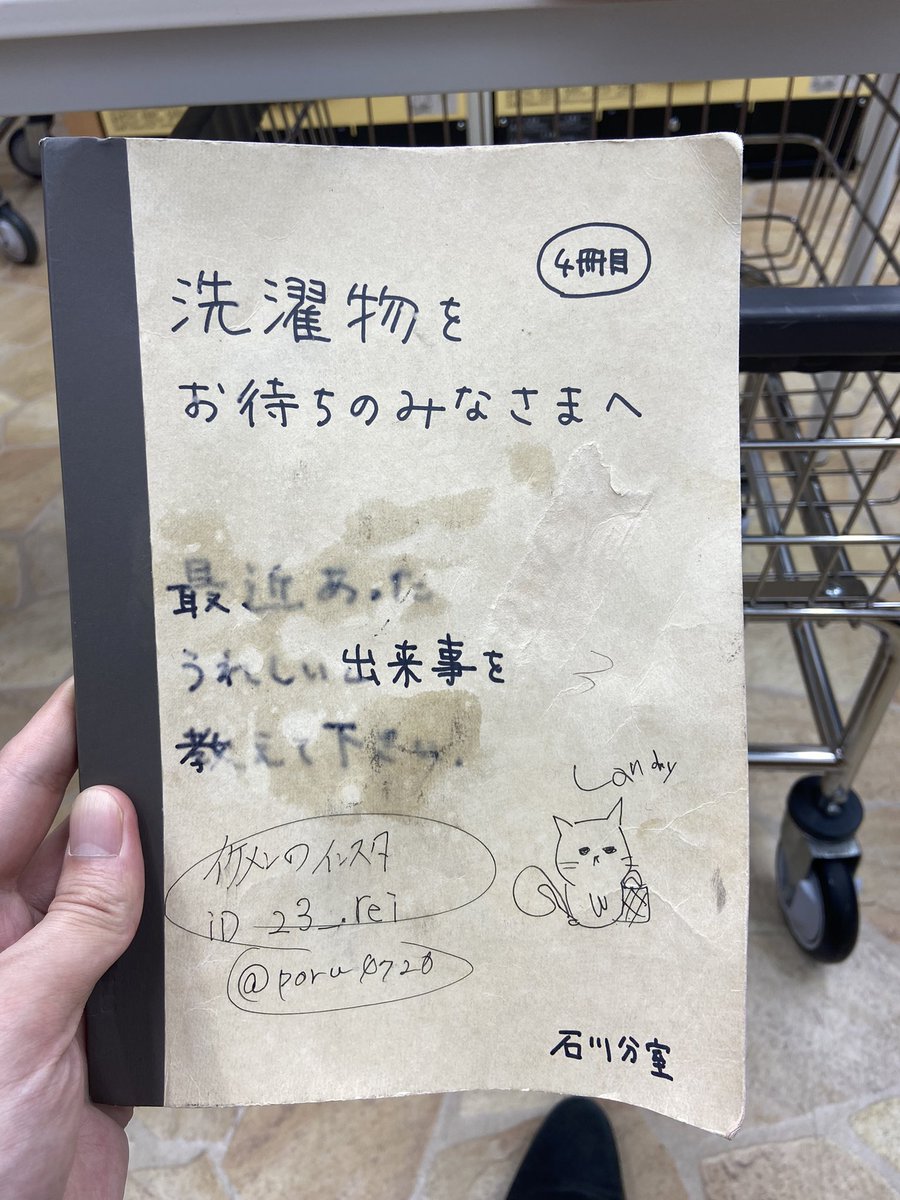 4冊目
洗濯物を
お待ちのみなさまへ
最近あった
うれしい出来事を
教えて下さい。
Landry
イケメンのインスタ
iD _23_.rei
@poru0720
石川分室